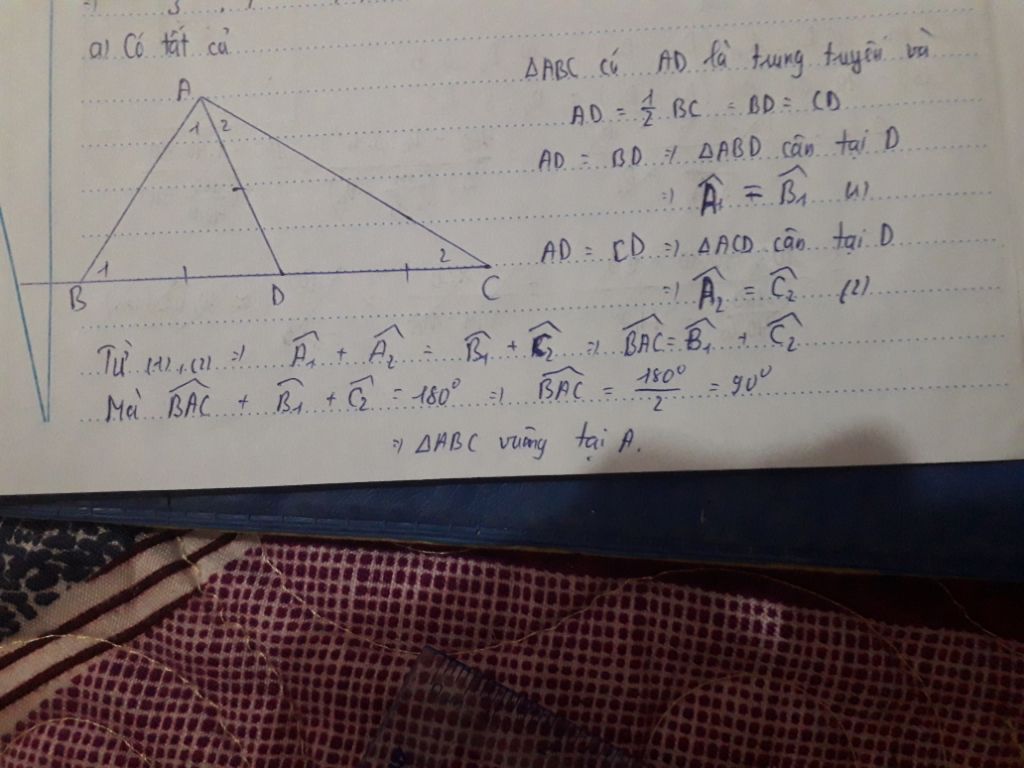 a) Có tất cả
ΔABC có AD là trung tuyến và
AD = 1/2 BC = BD = CD
AD = BD => ΔABD cân tại D
=> Â1 = B̂1 (1)
AD = CD => ΔACD cân tại D
=> Â2 = Ĉ2 (2)
A
1 2
1
2
B D C
Từ (1), (2) => Â1 + Â2 = B̂1 + Ĉ2 => B̂AC = B̂1 + Ĉ2
Mà B̂AC + B̂1 + Ĉ2 = 180° => B̂AC = 180°/2 = 90°
=> ΔABC vuông tại A.